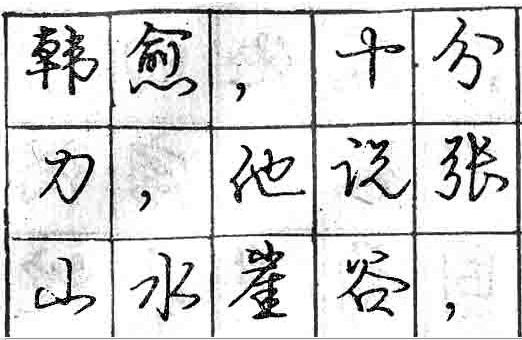 韩愈，十分
力，他说张
山水崖谷，